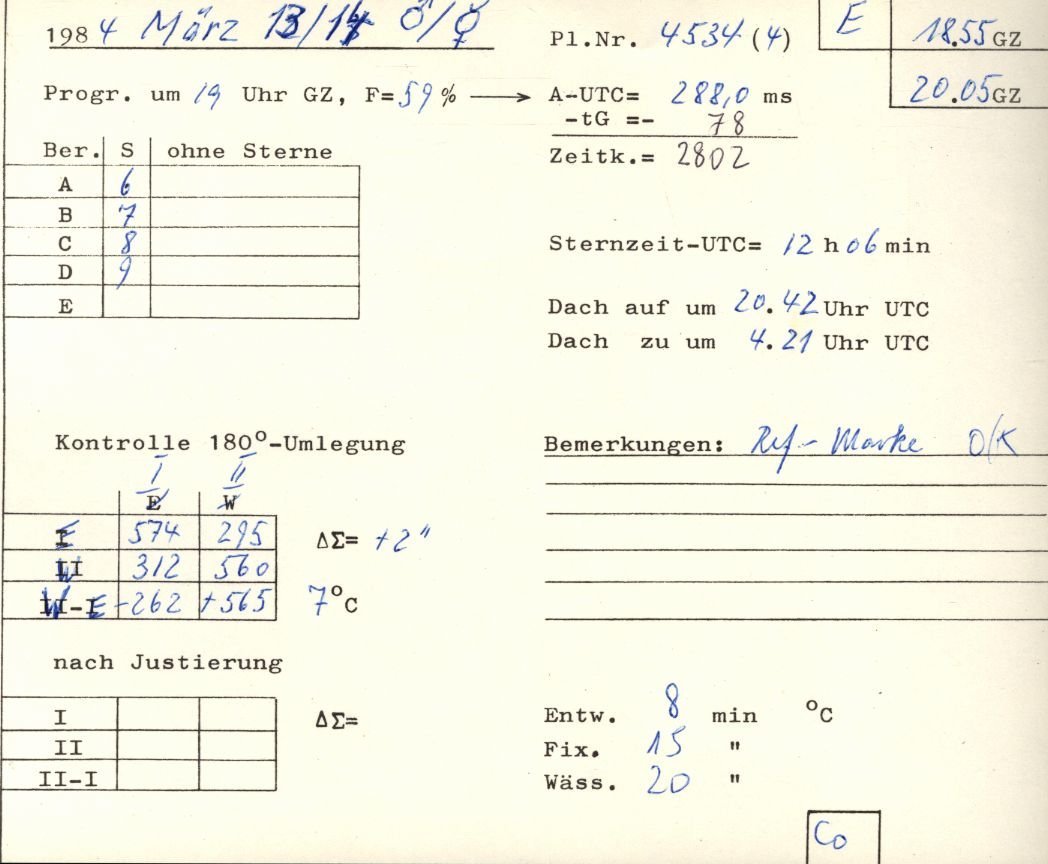 1984 März 13/14 ♂/♀
Pl.Nr. 4534 (4)
E 18.55 GZ
20.05 GZ
Progr. um 19 Uhr GZ, F=59% → A-UTC= 288,0 ms
-tG =- 78
Zeitk.= 2802
Ber. S ohne Sterne
A 6
B 7
C 8
D 9
E
Sternzeit-UTC= 12 h 06 min
Dach auf um 20.42 Uhr UTC
Dach zu um 4.21 Uhr UTC
Kontrolle 180°-Umlegung
Bemerkungen: Ref-Marke O/K
I II
E W
E 574 295 ΔΣ= +2"
W 312 560
W-E -262 +565 7°C
nach Justierung
I ΔΣ=
II
II-I
Entw. 8 min °C
Fix. 15 "
Wäss. 20 "
Co